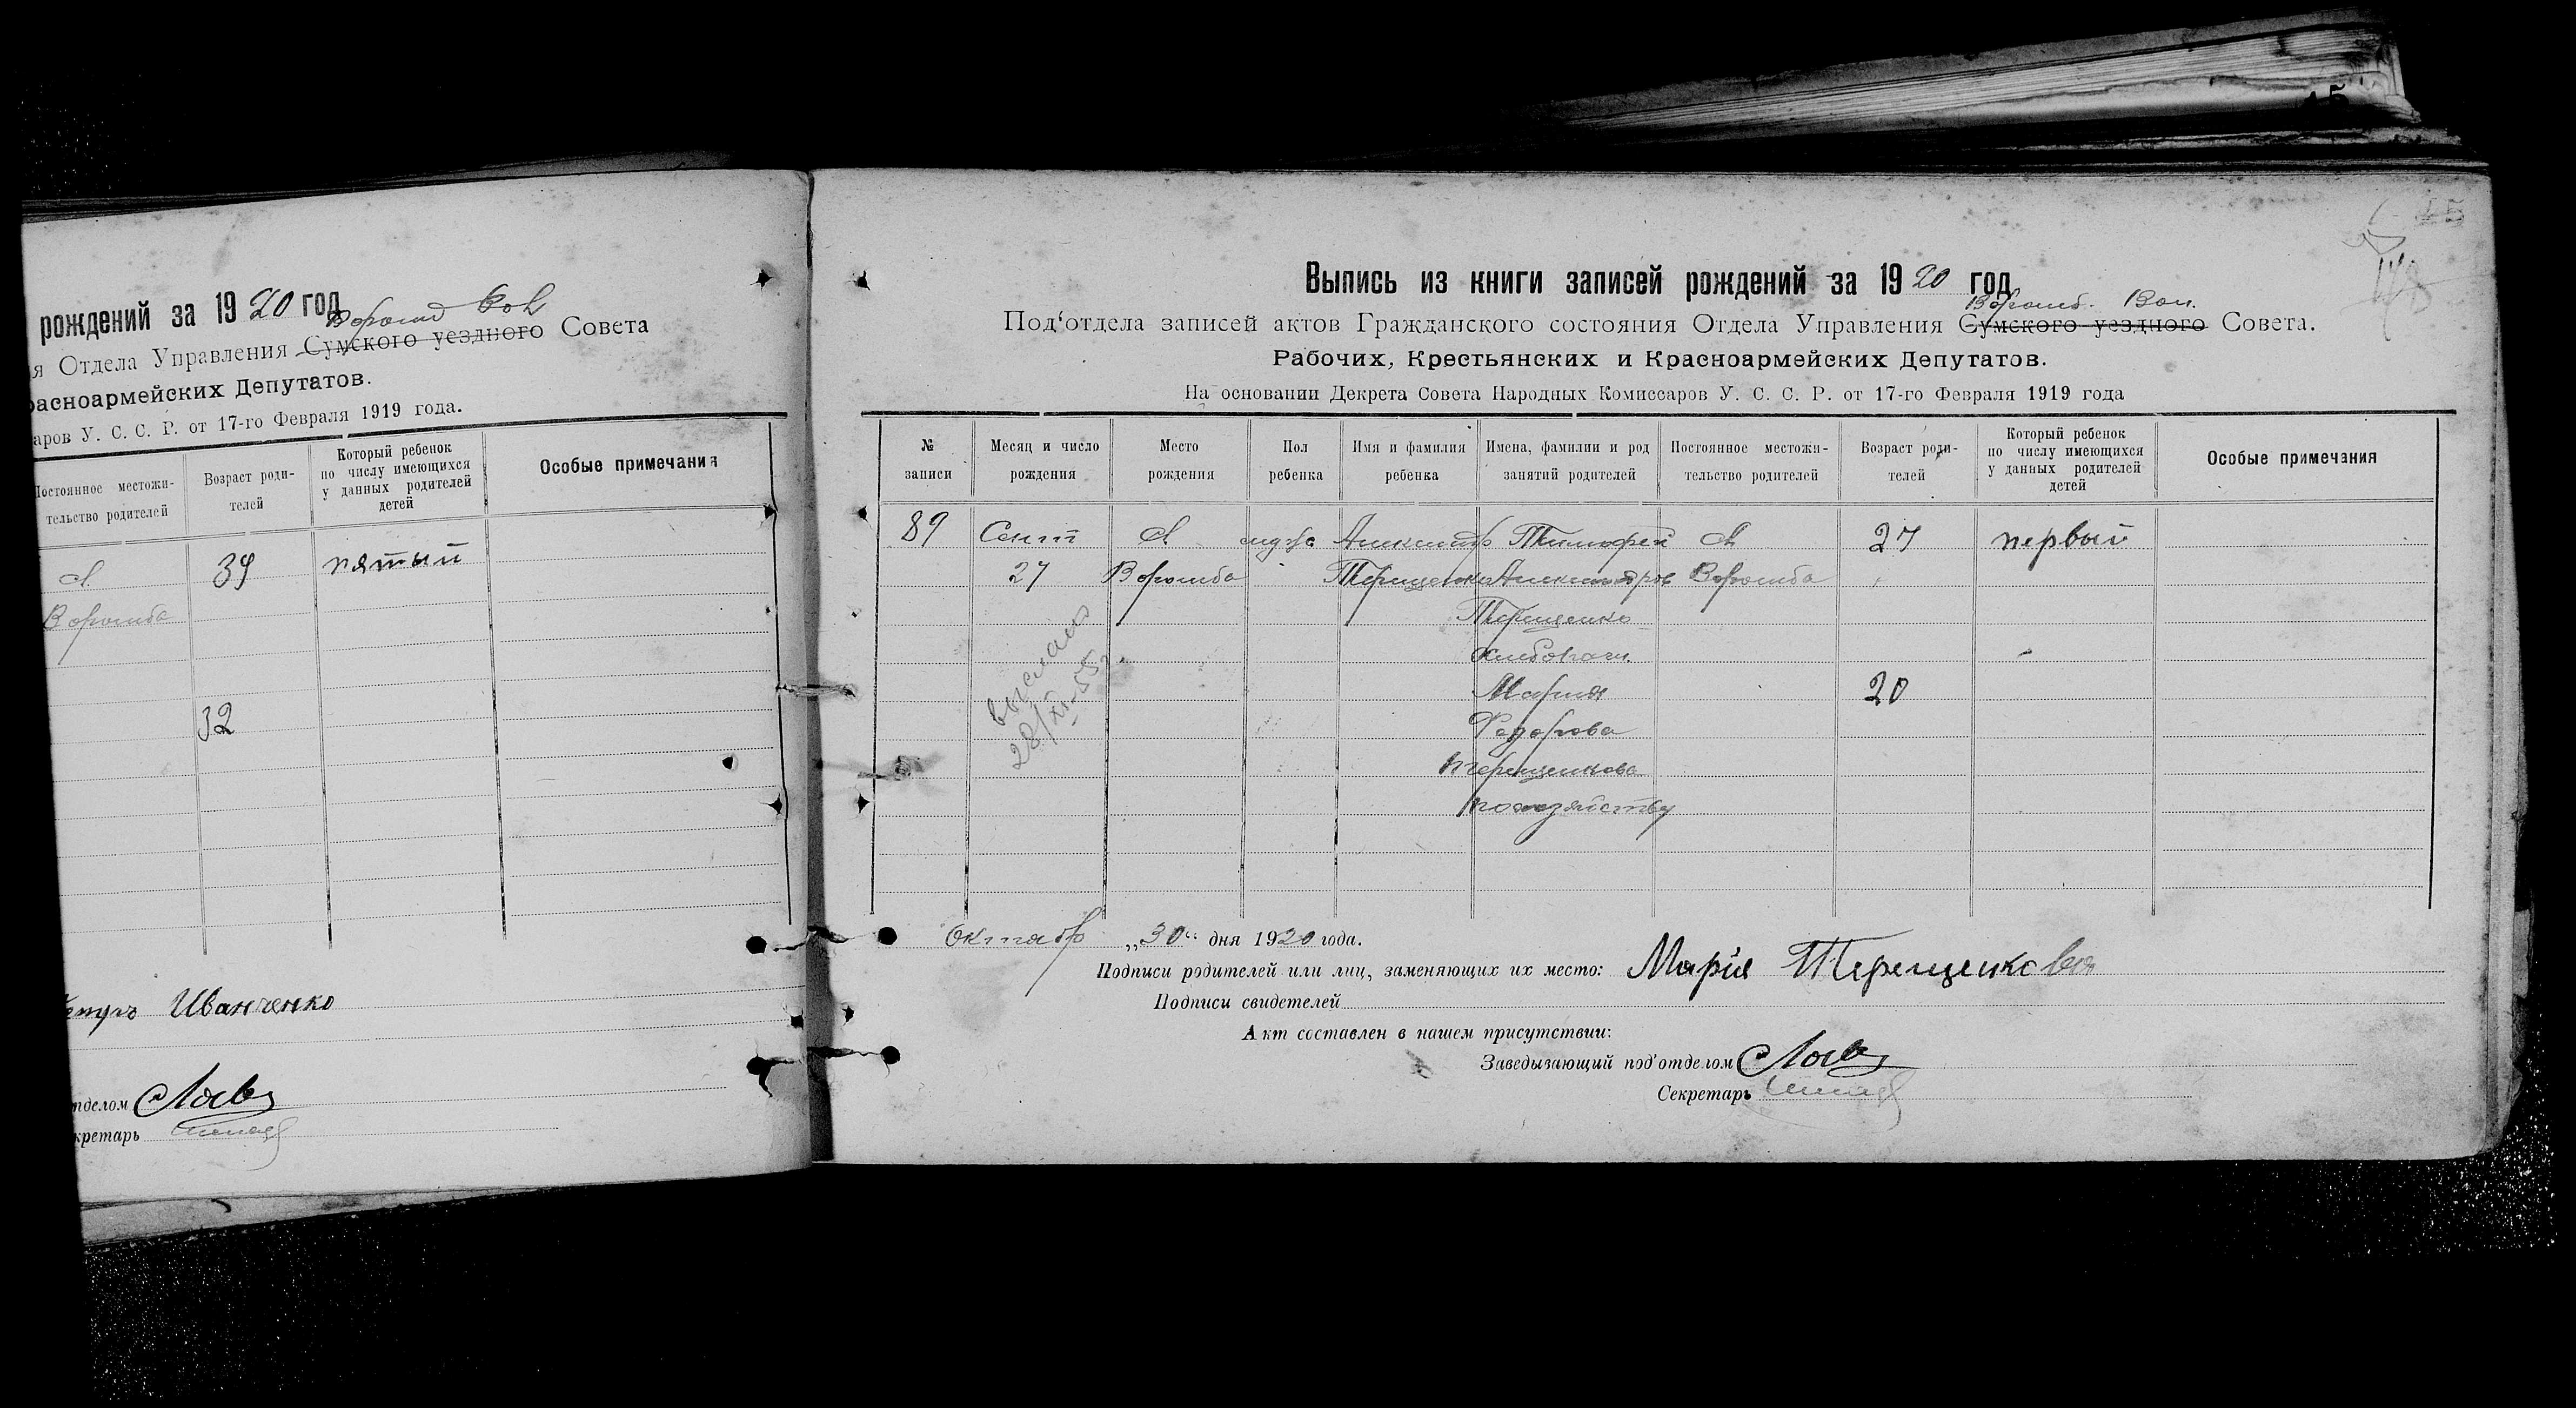 рождений за 1920 год
я Отдела Управления Сумского уездного Совета
расноармейских Депутатов.
аров У. С. С. Р. от 17-го Февраля 1919 года.
Постоянное местожи-
тельство родителей
Возраст роди-
телей
Который ребенок
по числу имеющихся
у данных родителей
детей
Особые примечания
39 пятый
Ворожба
32
Иванченко
тделом
кретарь
45
Выпись из книги записей рождений за 1920 год
Ворожб. Вол.
Под'отдела записей актов Гражданского состояния Отдела Управления Сумского уездного Совета.
Рабочих, Крестьянских и Красноармейских Депутатов.
На основании Декрета Совета Народных Комиссаров У. С. С. Р. от 17-го Февраля 1919 года
№
записи
Месяц и число
рождения
Место
рождения
Пол
ребенка
Имя и фамилия
ребенка
Имена, фамилии и род
занятий родителей
Постоянное местожи-
тельство родителей
Возраст роди-
телей
Который ребенок
по числу имеющихся
у данных родителей
детей
Особые примечания
89 Сент С мужс Александр Тимофей С 27 первый
27 Ворожба Терещенко Александров Ворожба
Терещенко
хлебопаш.
Мария 20
Федорова
Терещенкова
по хозяйству
выслано
28/XI-55г.
Октябр „30“ дня 1920 года.
Подписи родителей или лиц, заменяющих их место: Марія Терещенкова
Подписи свидетелей
Акт составлен в нашем присутствии:
Заведывающий под'отделом
Секретарь